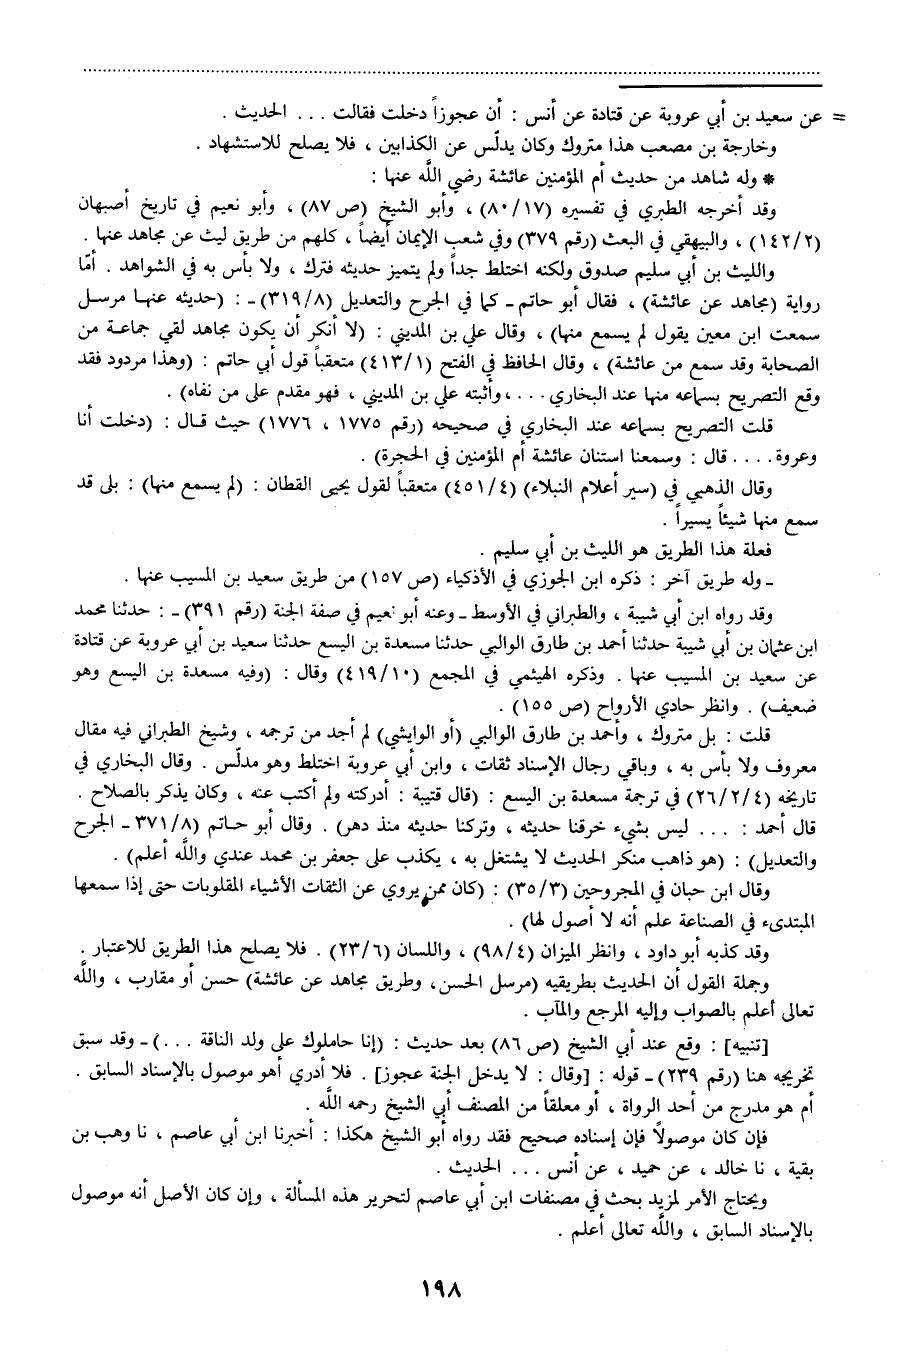 = عن سعيد بن أبي عروبة عن قتادة عن أنس : أن عجوزاً دخلت فقالت ... الحديث .
وخارجة بن مصعب هذا متروك وكان يدلّس عن الكذابين ، فلا يصلح للاستشهاد .
* وله شاهد من حديث أم المؤمنين عائشة رضي اللَّه عنها :
وقد أخرجه الطبري في تفسيره (٨٠/١٧) ، وأبو الشيخ (ص ٨٧) ، وأبو نعيم في تاريخ أصبهان
(١٤٢/٢) ، والبيهقي في البعث (رقم ٣٧٩) وفي شعب الإيمان أيضاً ، كلهم من طريق ليث عن مجاهد عنها .
والليث بن أبي سليم صدوق ولكنه اختلط جداً ولم يتميز حديثه فترك ، ولا بأس به في الشواهد . أمّا
رواية (مجاهد عن عائشة) ، فقال أبو حاتم ـ كما في الجرح والتعديل (٣١٩/٨)ـ : (حديثه عنها مرسل
سمعت ابن معين يقول لم يسمع منها) ، وقال علي بن المديني : (لا أنكر أن يكون مجاهد لقي جماعة من
الصحابة وقد سمع من عائشة) ، وقال الحافظ في الفتح (٤١٣/١) متعقباً قول أبي حاتم : (وهذا مردود فقد
وقع التصريح بسماعه منها عند البخاري ... ، وأثبته علي بن المديني ، فهو مقدم على من نفاه) .
قلت التصريح بسماعه عند البخاري في صحيحه (رقم ١٧٧٥ ، ١٧٧٦) حيث قال : (دخلت أنا
وعروة.... قال : وسمعنا استنان عائشة أم المؤمنين في الحجرة) .
وقال الذهبي في (سير أعلام النبلاء) (٤٥١/٤) متعقباً لقول يحيى القطان : (لم يسمع منها) : بلى قد
سمع منها شيئاً يسيراً .
فعلة هذا الطريق هو الليث بن أبي سليم .
ـ وله طريق آخر : ذكره ابن الجوزي في الأذكياء (ص ١٥٧) من طريق سعيد بن المسيب عنها .
وقد رواه ابن أبي شيبة ، والطبراني في الأوسط ـ وعنه أبو نعيم في صفة الجنة (رقم ٣٩١) ـ : حدثنا محمد
ابن عثمان بن أبي شيبة حدثنا أحمد بن طارق الوالبي حدثنا مسعدة بن اليسع حدثنا سعيد بن أبي عروبة عن قتادة
عن سعيد بن المسيب عنها . وذكره الهيثمي في المجمع (٤١٩/١٠) وقال : (وفيه مسعدة بن اليسع وهو
ضعيف) . وانظر حادي الأرواح (ص ١٥٥) .
قلت : بل متروك ، وأحمد بن طارق الوالبي (أو الوايشي) لم أجد من ترجمه ، وشيخ الطبراني فيه مقال
معروف ولا بأس به ، وباقي رجال الإسناد ثقات ، وابن أبي عروبة اختلط وهو مدلّس . وقال البخاري في
تاريخه (٢٦/٢/٤) في ترجمة مسعدة بن اليسع : (قال قتيبة : أدركته ولم أكتب عنه ، وكان يذكر بالصلاح .
قال أحمد : ... ليس بشيء خرقنا حديثه ، وتركنا حديثه منذ دهر) . وقال أبو حاتم (٣٧١/٨ ـ الجرح
والتعديل) : (هو ذاهب منكر الحديث لا يشتغل به ، يكذب على جعفر بن محمد عندي واللَّه أعلم) .
وقال ابن حبان في المجروحين (٣٥/٣) : (كان ممن يروي عن الثقات الأشياء المقلوبات حتى إذا سمعها
المبتدىء في الصناعة علم أنه لا أصول لها) .
وقد كذبه أبو داود ، وانظر الميزان (٩٨/٤) ، واللسان (٢٣/٦) . فلا يصلح هذا الطريق للاعتبار .
وجملة القول أن الحديث بطريقيه (مرسل الحسن، وطريق مجاهد عن عائشة) حسن أو مقارب ، واللَّه
تعالى أعلم بالصواب وإليه المرجع والمآب .
[تنبيه] : وقع عند أبي الشيخ (ص ٨٦) بعد حديث : (إنا حاملوك على ولد الناقة ...) ـ وقد سبق
تخريجه هنا (رقم ٢٣٩) ـ قوله : [وقال : لا يدخل الجنة عجوز] . فلا أدري أهو موصول بالإسناد السابق .
أم هو مدرج من أحد الرواة ، أو معلقاً من المصنف أبي الشيخ رحمه اللَّه .
فإن كان موصولاً فإن إسناده صحيح فقد رواه أبو الشيخ هكذا : أخبرنا ابن أبي عاصم ، نا وهب بن
بقية ، نا خالد ، عن حميد ، عن أنس ... الحديث .
ويحتاج الأمر لمزيد بحث في مصنفات ابن أبي عاصم لتحرير هذه المسألة ، وإن كان الأصل أنه موصول
بالإسناد السابق ، واللَّه تعالى أعلم .
١٩٨